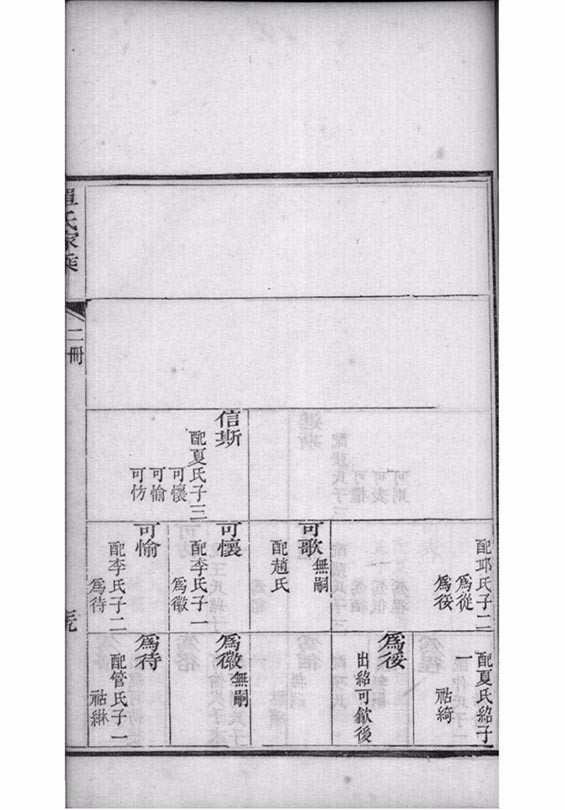 配邱氏子二
爲從
爲後
可歌
無嗣
配趙氏
信斯
配夏氏子三
可懷
可愉
可
可懷
配李氏子一
爲徽
可愉
配李氏子二
爲待
配夏氏紹子
一
祜綺
爲後
出紹可歛後
爲徽
無嗣
爲待
配管氏子一
祜綝
單氏家乘
二冊